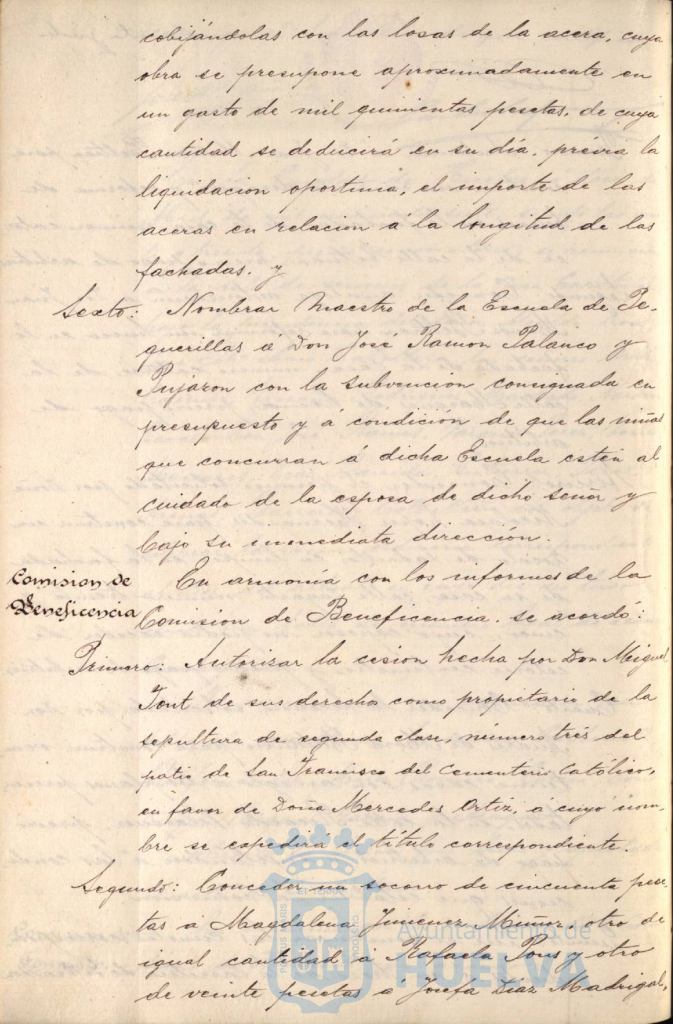 cobijándolas con las losas de la acera, cuya
obra se presupone aproximadamente en
un gasto de mil quinientas pesetas, de cuya
cantidad se deducirá en su día, prévia la
liquidacion oportuna, el importe de las
aceras en relacion á la longitud de las
fachadas. y
Sexto: Nombrar Maestro de la Escuela de Pe-
querillas á Don José Ramon Palanco y
Pujaron con la subvencion consignada en
presupuesto y á condición de que las niñas
que concurran á dicha Escuela estén al
cuidado de la esposa de dicho señor y
bajo su inmediata dirección.
Comision de
Beneficencia
En armonía con los informes de la
Comision de Beneficencia, se acordó:
Primero: Autorizar la cesion hecha por Don Miguel
Font de sus derechos como propietario de la
sepultura de segunda clase, número trés del
patio de San Francisco del Cementerio Católico,
en favor de Doña Mercedes Ortiz, á cuyo nom-
bre se expedirá el título correspondiente.
Segundo: Conceder un socorro de cincuenta pese-
tas á Magdalena Jimenez Muñoz, otro de
igual cantidad á Rafaela Pous y otro
de veinte pesetas á Josefa Díaz Madrigal,
Ayuntamiento de
HUELVA